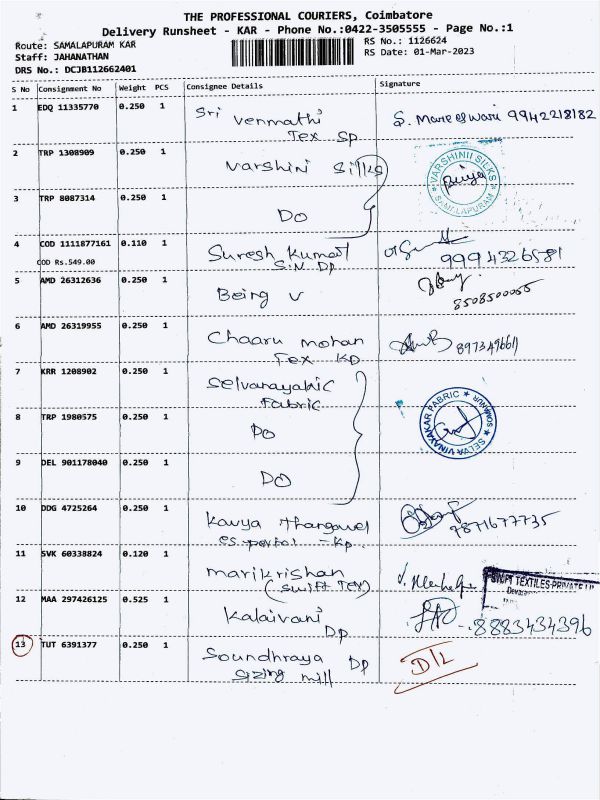 THE PROFESSIONAL COURIERS, Coimbatore
Delivery Runsheet - KAR - Phone No.:0422-3505555 - Page No.:1
Route: SAMALAPURAM KAR
RS No.: 1126624
Staff: JAHANATHAN
RS Date: 01-Mar-2023
DRS No.: DCJB112662401
S No Consignment No Weight PCS Consignee Details Signature
1 EDQ 11335770 0.250 1 Sri Venmathi
Tex SP
S. Mareeswari 9942218182
2 TRP 1308909 0.250 1 Varshini Silks
VARSHINII SILKS
SAMALAPURAM
3 TRP 8087314 0.250 1 DO
4 COD 1111877161 0.110 1 Suresh Kumar
COD Rs.549.00 S.N. DP
9994326581
5 AMD 26312636 0.250 1 Being U
8508500055
6 AMD 26319955 0.250 1 Chaaru mohan
Tex KP
897349661
7 KRR 1208902 0.250 1 Selvanayakic
Fabric
SELVA VINAYAKAR FABRIC
SOMANUR
8 TRP 1980575 0.250 1 DO
9 DEL 901178040 0.250 1 DO
10 DDG 4725264 0.250 1 Kavya Thangavel
- Kp.
7871677735
11 SVK 60338824 0.120 1 marikrishan
(Swift Tex)
SWIFT TEXTILES PRIVATE LI
12 MAA 297426125 0.525 1 Kalaivani
DP
8883434396
13 TUT 6391377 0.250 1 Soundhraya DP
Sizing mill
D/L